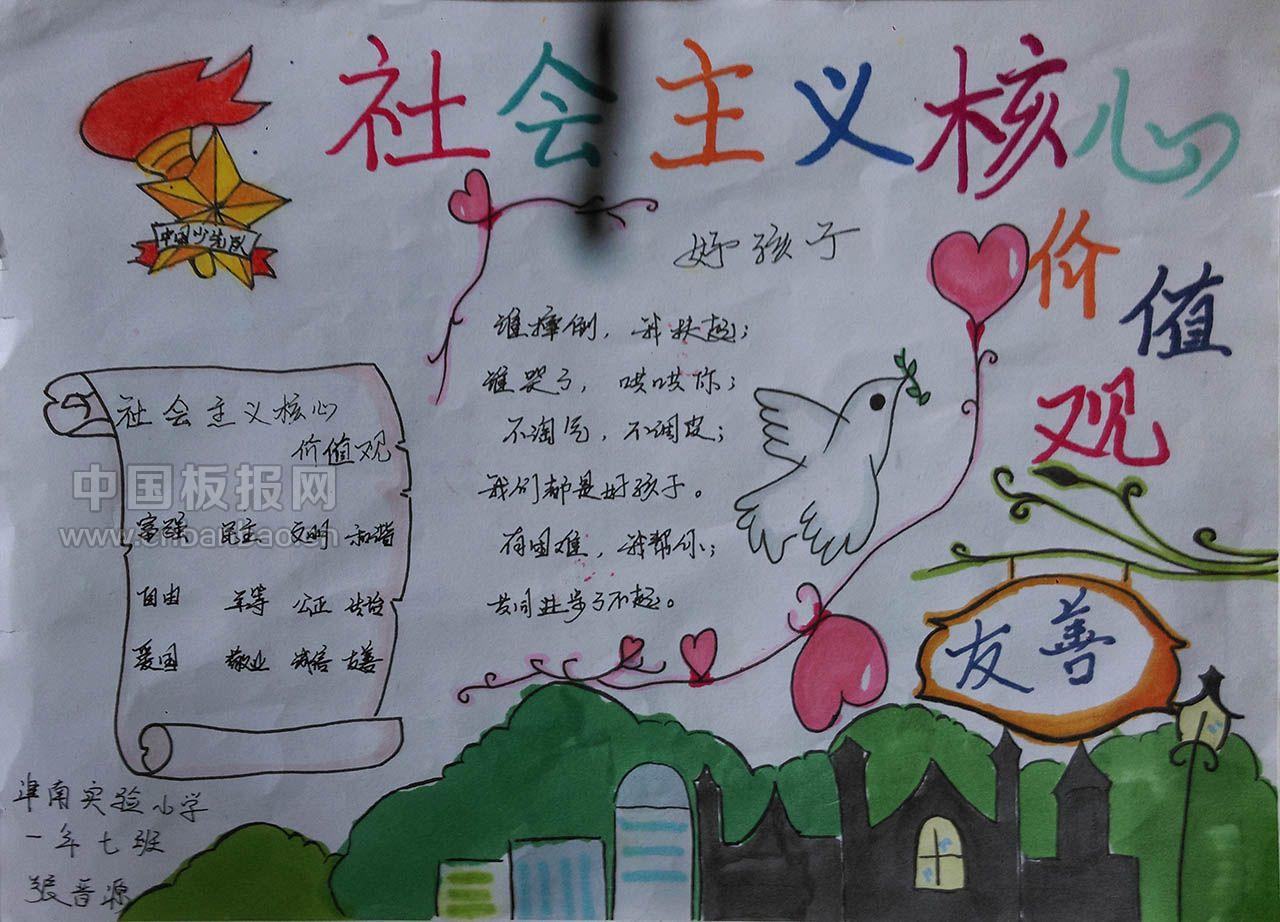 社会主义核心
价值观
中国少先队
好孩子
谁摔倒，我扶起；
谁哭了，哄哄你；
不淘气，不调皮；
我们都是好孩子。
有困难，我帮你；
友善
社会主义核心
价值观
中国板报网
富强 民主 文明 和谐
自由 平等 公正 法治
爱国 敬业 诚信 友善
淮南实验小学
一年七班
张晋源